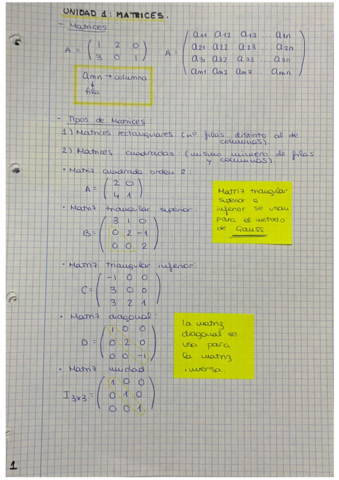 UNIDAD 1: MATRICES.
- Matrices
A = ( 1 2 0
3 0 1 )
A = ( a11 a12 a13 a1n
a21 a22 a23 a2n
a31 a32 a33 a3n
am1 am2 am3 amn )
amn → columna
↓
fila
- Tipos de Matrices
1) Matrices rectangulares (nº filas distinto al de
columnas).
2) Matrices cuadradas (mismo número de filas
y columnas).
• Matriz cuadrada orden 2:
A = ( 2 0
4 1 )
• Matriz triangular superior
B = ( 3 1 0
0 2 -1
0 0 2 )
Matriz triangular
superior e
inferior se usan
para el metodo
de Gauss.
• Matriz triangular inferior.
C = ( -1 0 0
3 0 0
3 2 1 )
• Matriz diagonal:
D = ( 1 0 0
0 2 0
0 0 -1 )
La matriz
diagonal se
usa para
la matriz
inversa.
• Matriz unidad
I3x3 = ( 1 0 0
0 1 0
0 0 1 )
1